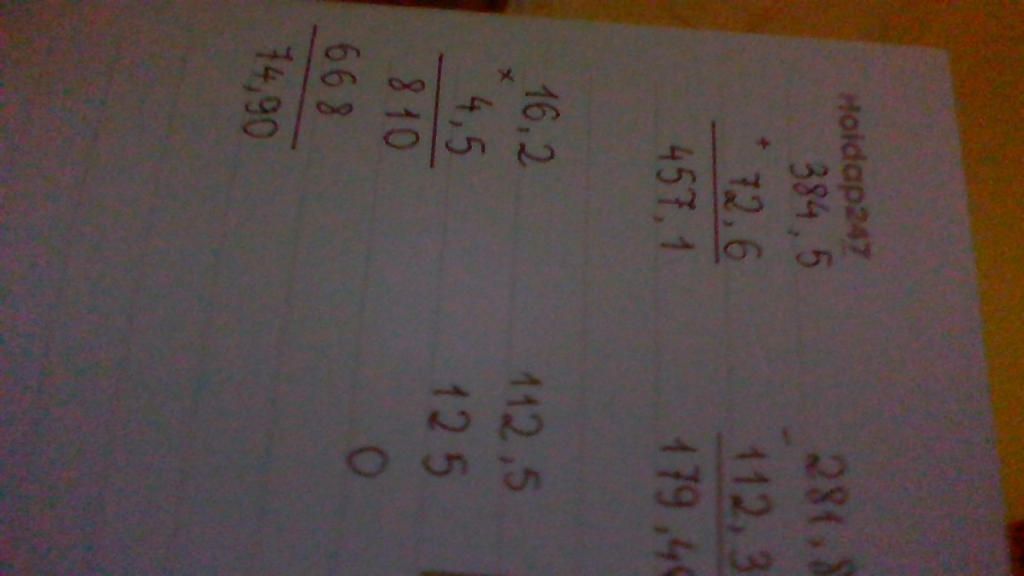 Hoidap247
384,5
+ 72,6
457,1
281,8
- 112,3
179,4
16,2
× 4,5
810
668
74,90
112,5
125
0